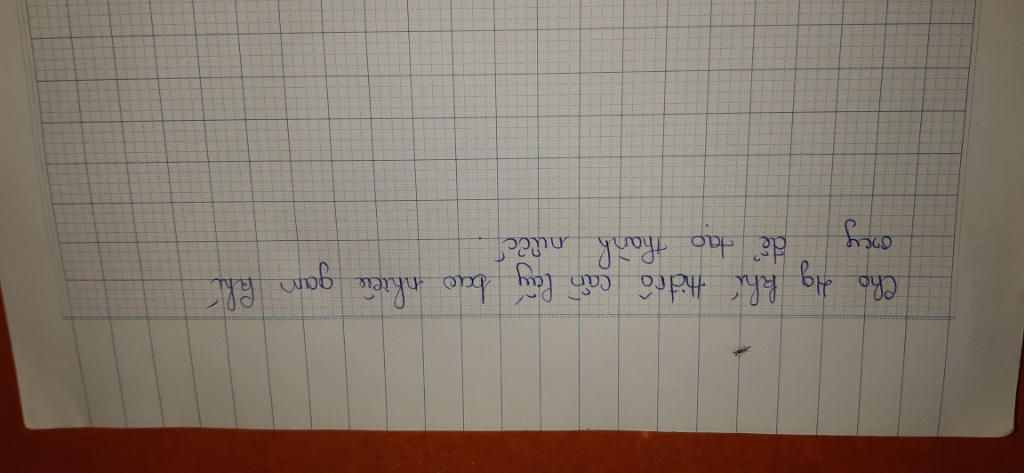 Cho 4g khí hiđrô cần lấy bao nhiêu gam khí
oxy để tạo thành nước.